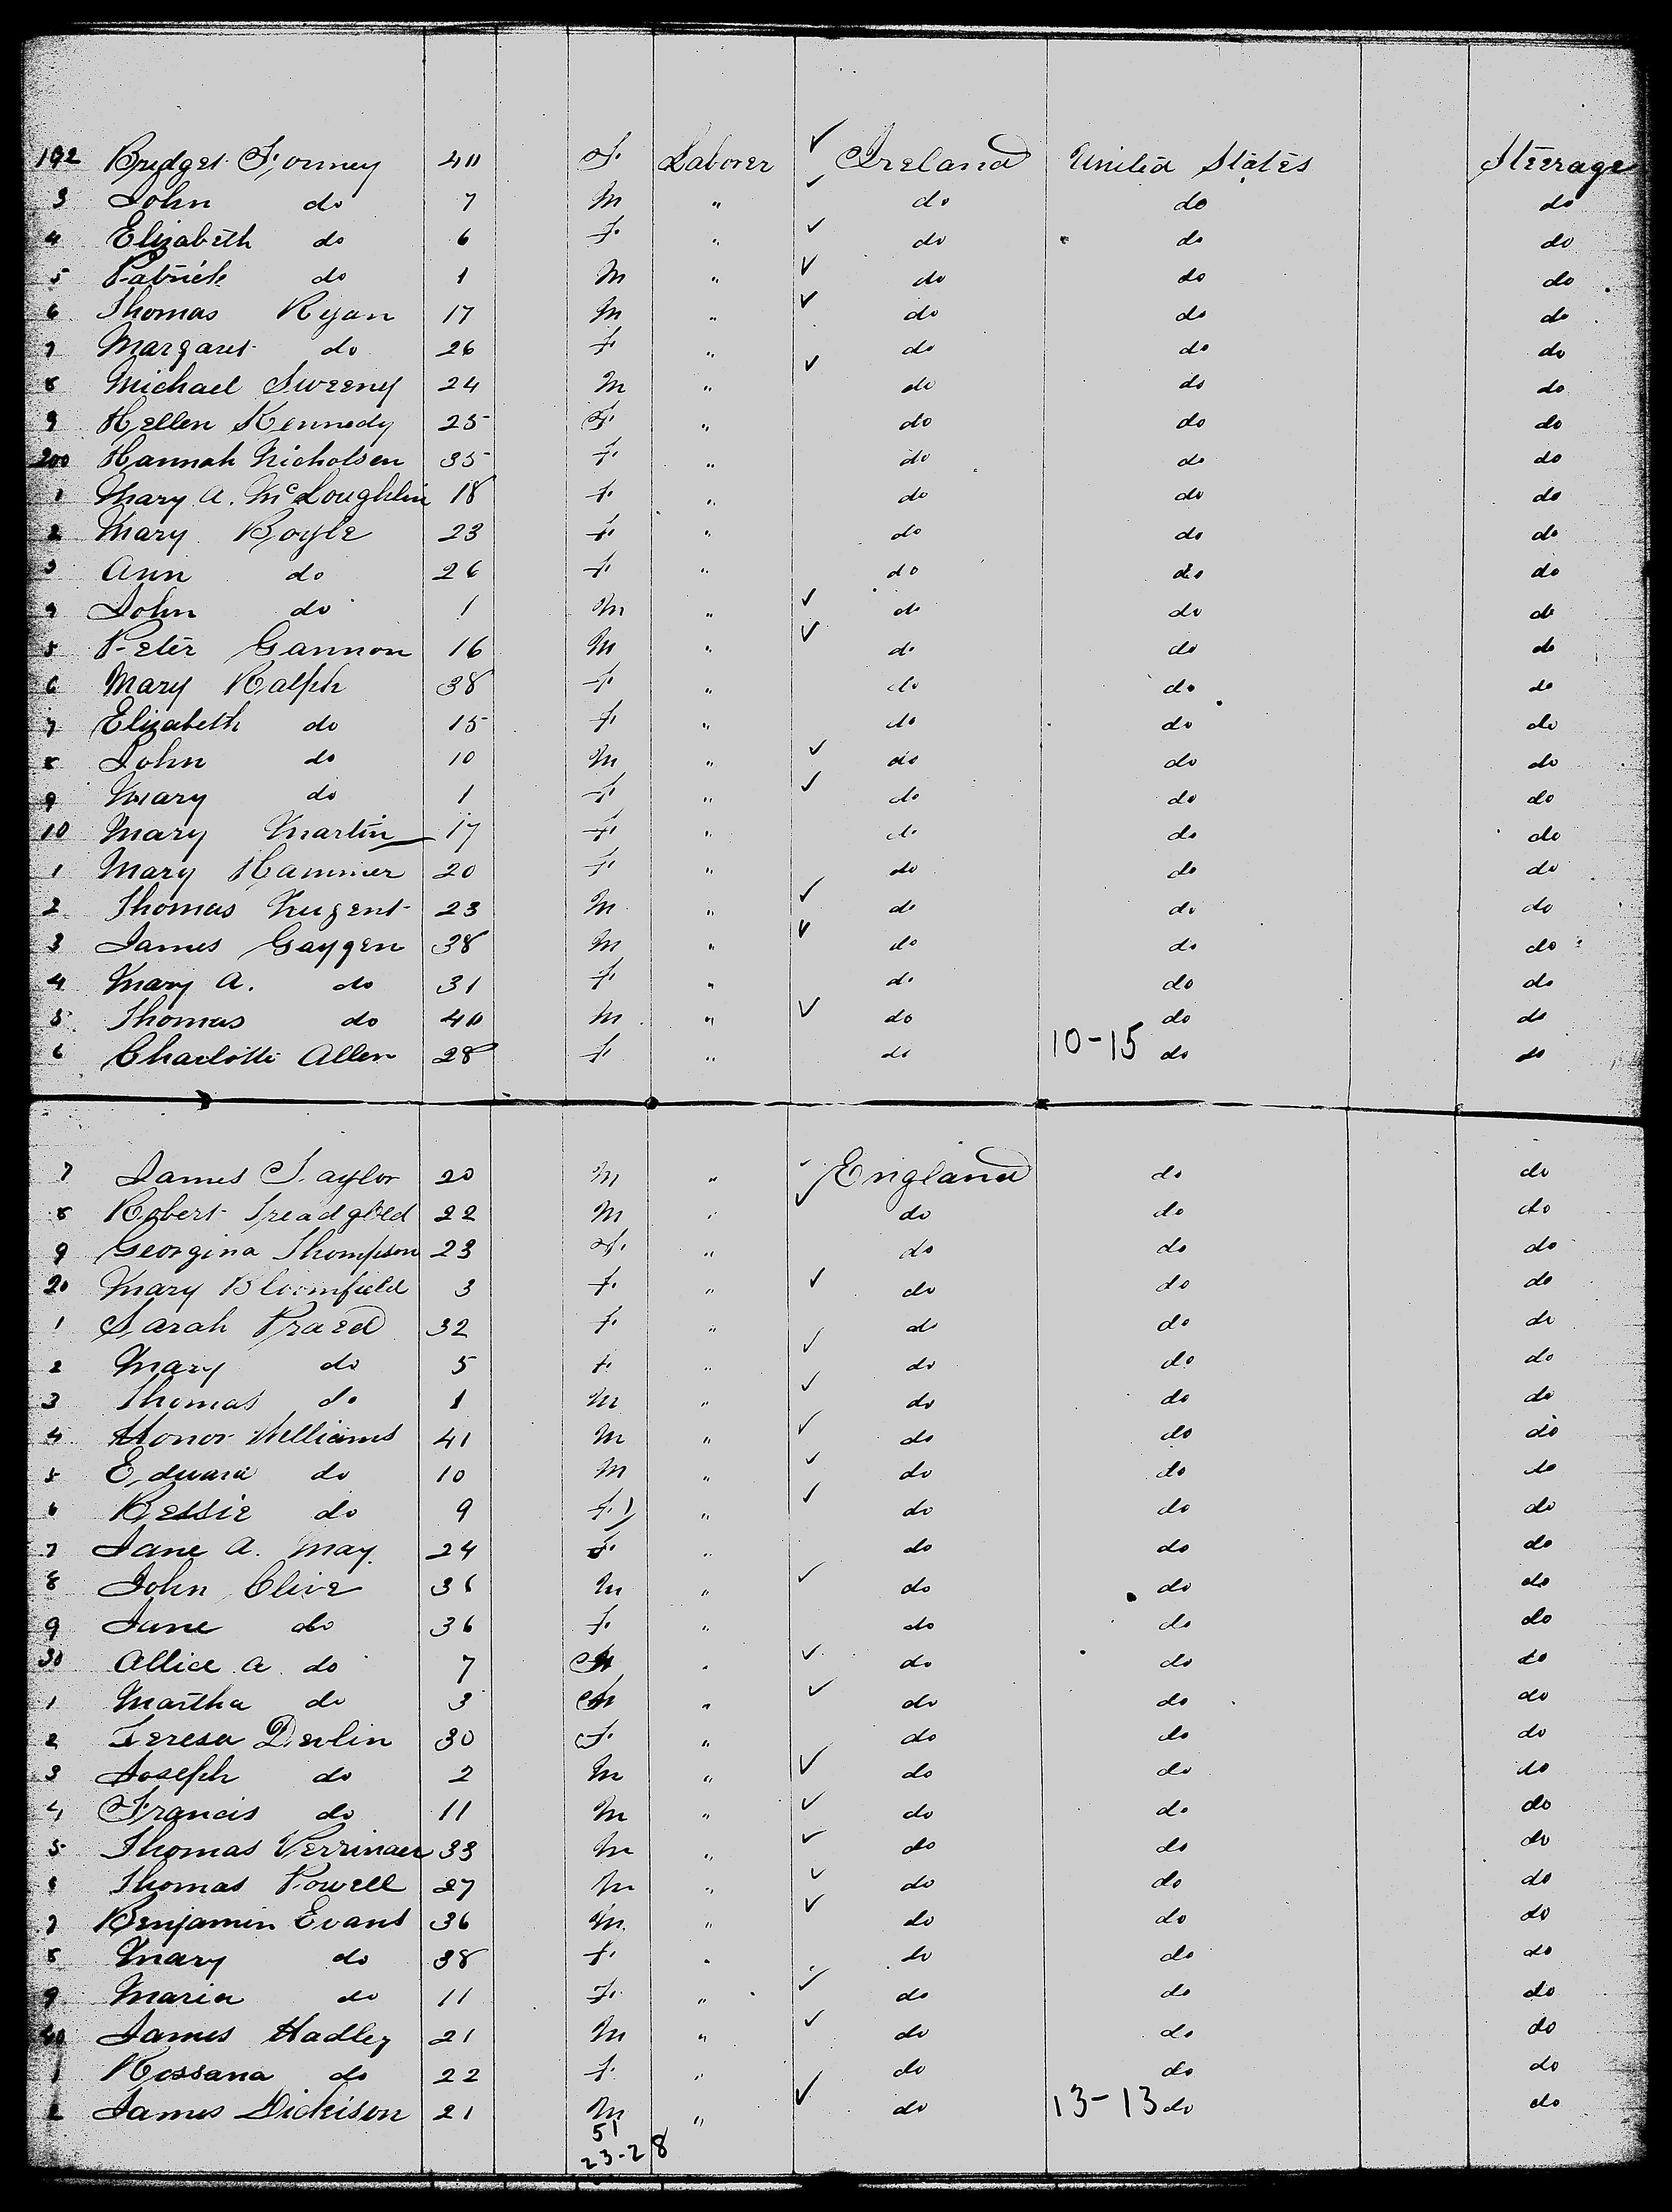 192 Bridget Forney 40 F. Laborer ✓ Ireland United States Steerage
3 John do 7 M " ✓ do do do
4 Elizabeth do 6 F. " ✓ do do do
5 Patrick do 1 M " ✓ do do do
6 Thomas Ryan 17 M " ✓ do do do
7 Margaret do 26 F " do do do
8 Michael Sweeny 24 M " ✓ do do do
9 Hellen Kennedy 25 F. " do do do
200 Hannah Nicholsen 35 F. " do do do
1 Mary A. McLoughlin 18 F. " do do do
2 Mary Boyle 23 F. " do do do
3 Ann do 26 F. " do do do
4 John do 1 M " ✓ do do do
5 Peter Gannon 16 M " ✓ do do do
6 Mary Ralph 38 F. " do do do
7 Elizabeth do 15 F. " do do do
8 John do 10 M " ✓ do do do
9 Mary do 1 F. " ✓ do do do
10 Mary Martin 17 F. " do do do
1 Mary Hammer 20 F. " do do do
2 Thomas Nugent 23 M " ✓ do do do
3 James Gaygen 38 M " ✓ do do do
4 Mary A. do 31 F. " do do do
5 Thomas do 40 M " ✓ do do do
6 Charlotte Allen 28 F. " do 10-15 do do
7 James Taylor 20 M " ✓ England do do
8 Robert Treadgold 22 M " ✓ do do do
9 Georgina Thompson 23 F. " do do do
20 Mary Bloomfield 3 F. " ✓ do do do
1 Sarah Praed 32 F. " do do do
2 Mary do 5 F. " ✓ do do do
3 Thomas do 1 M " ✓ do do do
4 Honor Williams 41 M " ✓ do do do
5 Edward do 10 M " ✓ do do do
6 Bessie do 9 F. " ✓ do do do
7 Jane A. May 24 F. " do do do
8 John Clive 36 M " ✓ do do do
9 Jane do 36 F. " do do do
30 Allice A. do 7 " ✓ do do do
1 Martha do 3 " ✓ do do do
2 Teresa Devlin 30 F. " do do do
3 Joseph do 2 M " ✓ do do do
4 Francis do 11 M " ✓ do do do
5 Thomas 33 M " ✓ do do do
6 Thomas Powell 27 M " ✓ do do do
7 Benjamin Evans 36 M. " ✓ do do do
8 Mary do 38 F. " do do do
9 Maria do 11 F. " ✓ do do do
40 James Hadley 21 M " ✓ do do do
1 Rossana do 22 F. " do do do
2 James Dickison 21 M " ✓ do 13-13 do do
51
23-28